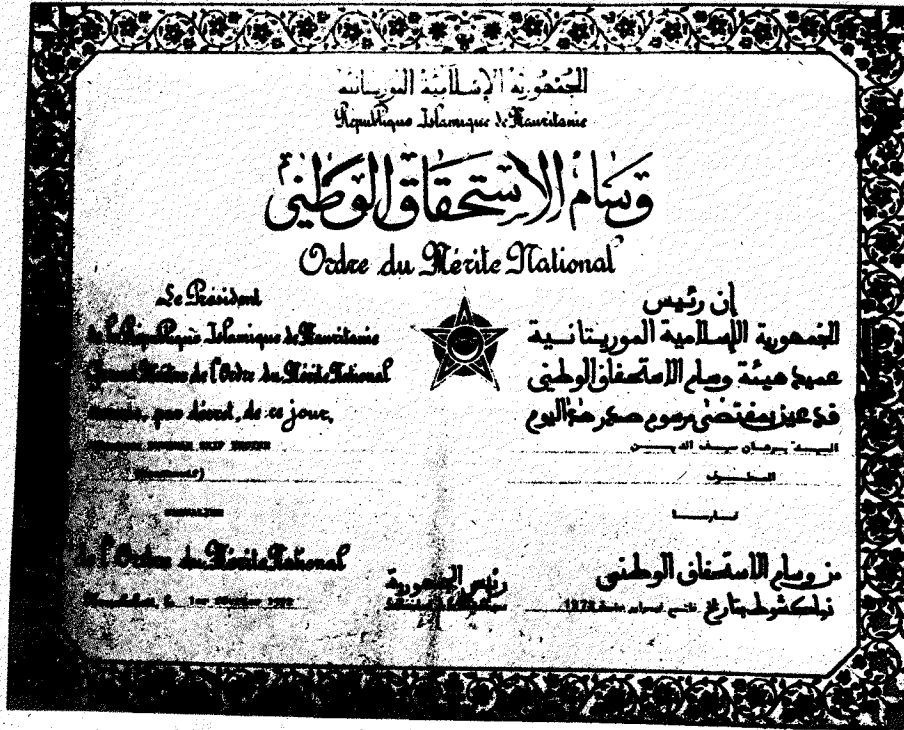 الجمهورية الإسلامية الموريتانية
République Islamique de Mauritanie
وسام الاستحقاق الوطني
Ordre du Mérite National
Le Président
de la République Islamique de Mauritanie
Grand Maître de l'Ordre du Mérite National
par décret, de ce jour,
SEIF
de l'Ordre du Mérite National
le 1er 
إن رئيس
الجمهورية الإسلامية الموريتانية
عميد هيئة وسام الاستحقاق الوطني
قد عين بمقتضى مرسوم صدر هذا اليوم
السيد برهان سيف الدين
فارسا
من وسام الاستحقاق الوطني
نواكشوط بتاريخ
رئيس الجمهورية